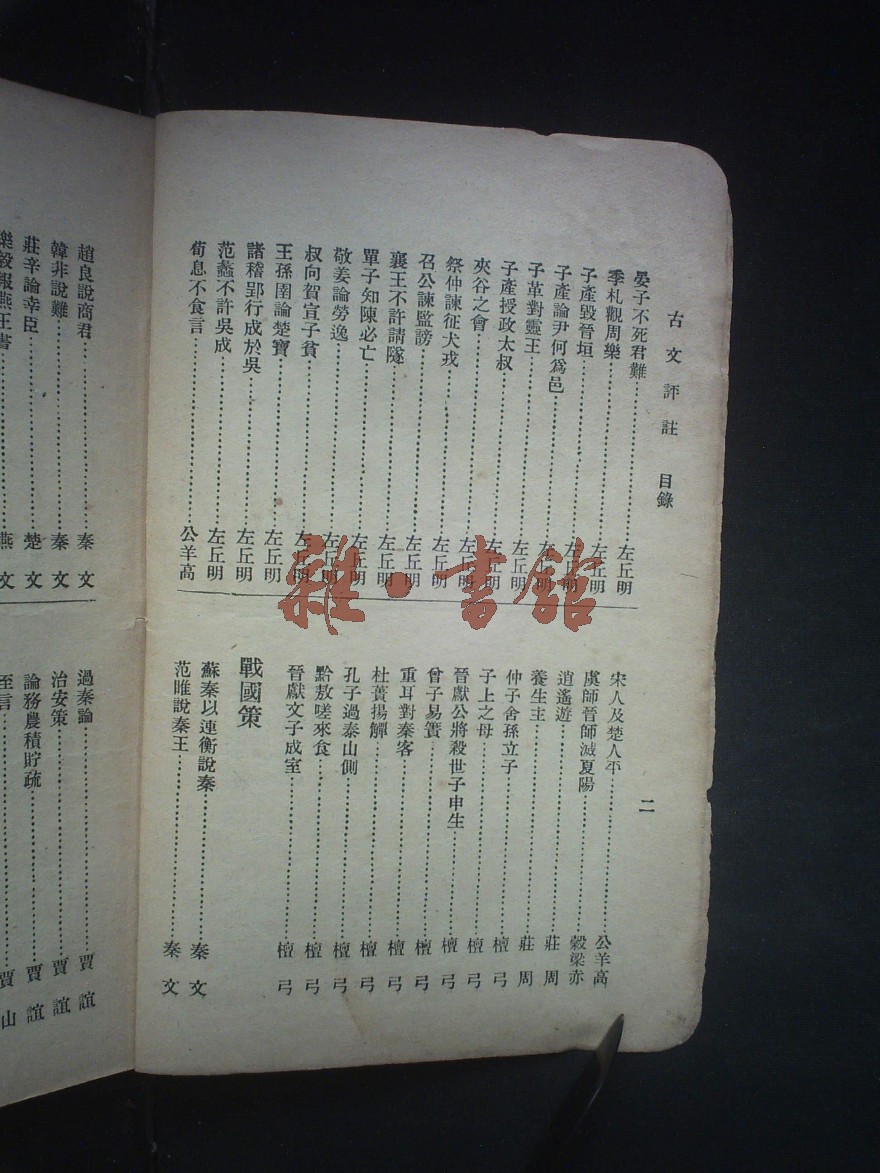 古文評註 目錄 二
晏子不死君難 左丘明
季札觀周樂 左丘明
子產毀晉垣 左丘明
子產論尹何為邑 左丘明
子革對靈王 左丘明
子產授政太叔 左丘明
夾谷之會 左丘明
祭仲諫征犬戎 左丘明
召公諫監謗 左丘明
襄王不許請隧 左丘明
單子知陳必亡 左丘明
敬姜論勞逸 左丘明
叔向賀宣子貧 左丘明
王孫圉論楚寶 左丘明
諸稽郢行成於吳 左丘明
范蠡不許吳成 左丘明
荀息不食言 公羊高
宋人及楚人平 公羊高
虞師晉師滅夏陽 穀梁赤
逍遙遊 莊周
養生主 莊周
仲子舍孫立子 檀弓
子上之母 檀弓
晉獻公將殺世子申生 檀弓
曾子易簀 檀弓
重耳對秦客 檀弓
杜蕢揚觶 檀弓
孔子過泰山側 檀弓
黔敖嗟來食 檀弓
晉獻文子成室 檀弓
戰國策
蘇秦以連衡說秦 秦文
范睢說秦王 秦文
趙良說商君 秦文
韓非說難 秦文
莊辛論幸臣 楚文
樂毅報燕王書 燕文
過秦論 賈誼
治安策 賈誼
論務農積貯疏 賈誼
至言 賈山
雜·書館